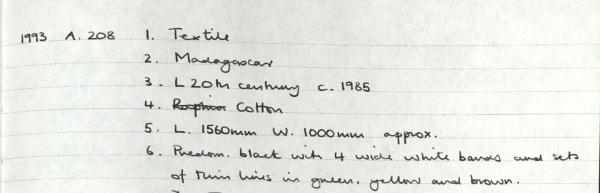 1993 A. 208 1. Textile
2. Madagascar
3. L 20th century c. 1985
4. Raphia Cotton
5. L. 1560mm W. 1000mm approx.
6. Predom. black with 4 wide white bands and sets
of thin lines in green, yellow and brown.